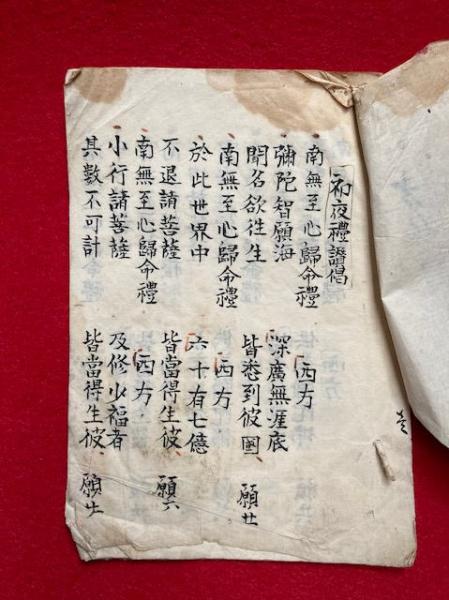 初夜禮讃偈
南無至心歸命禮 西方
彌陀智願海 深廣無涯底
聞名欲往生 皆悉到彼國 願廿
南無至心歸命禮 西方
於此世界中 六十有七億
不退諸菩薩 皆當得生彼 願六
南無至心歸命禮 西方
小行諸菩薩 及修少福者
其數不可計 皆當得生彼 願